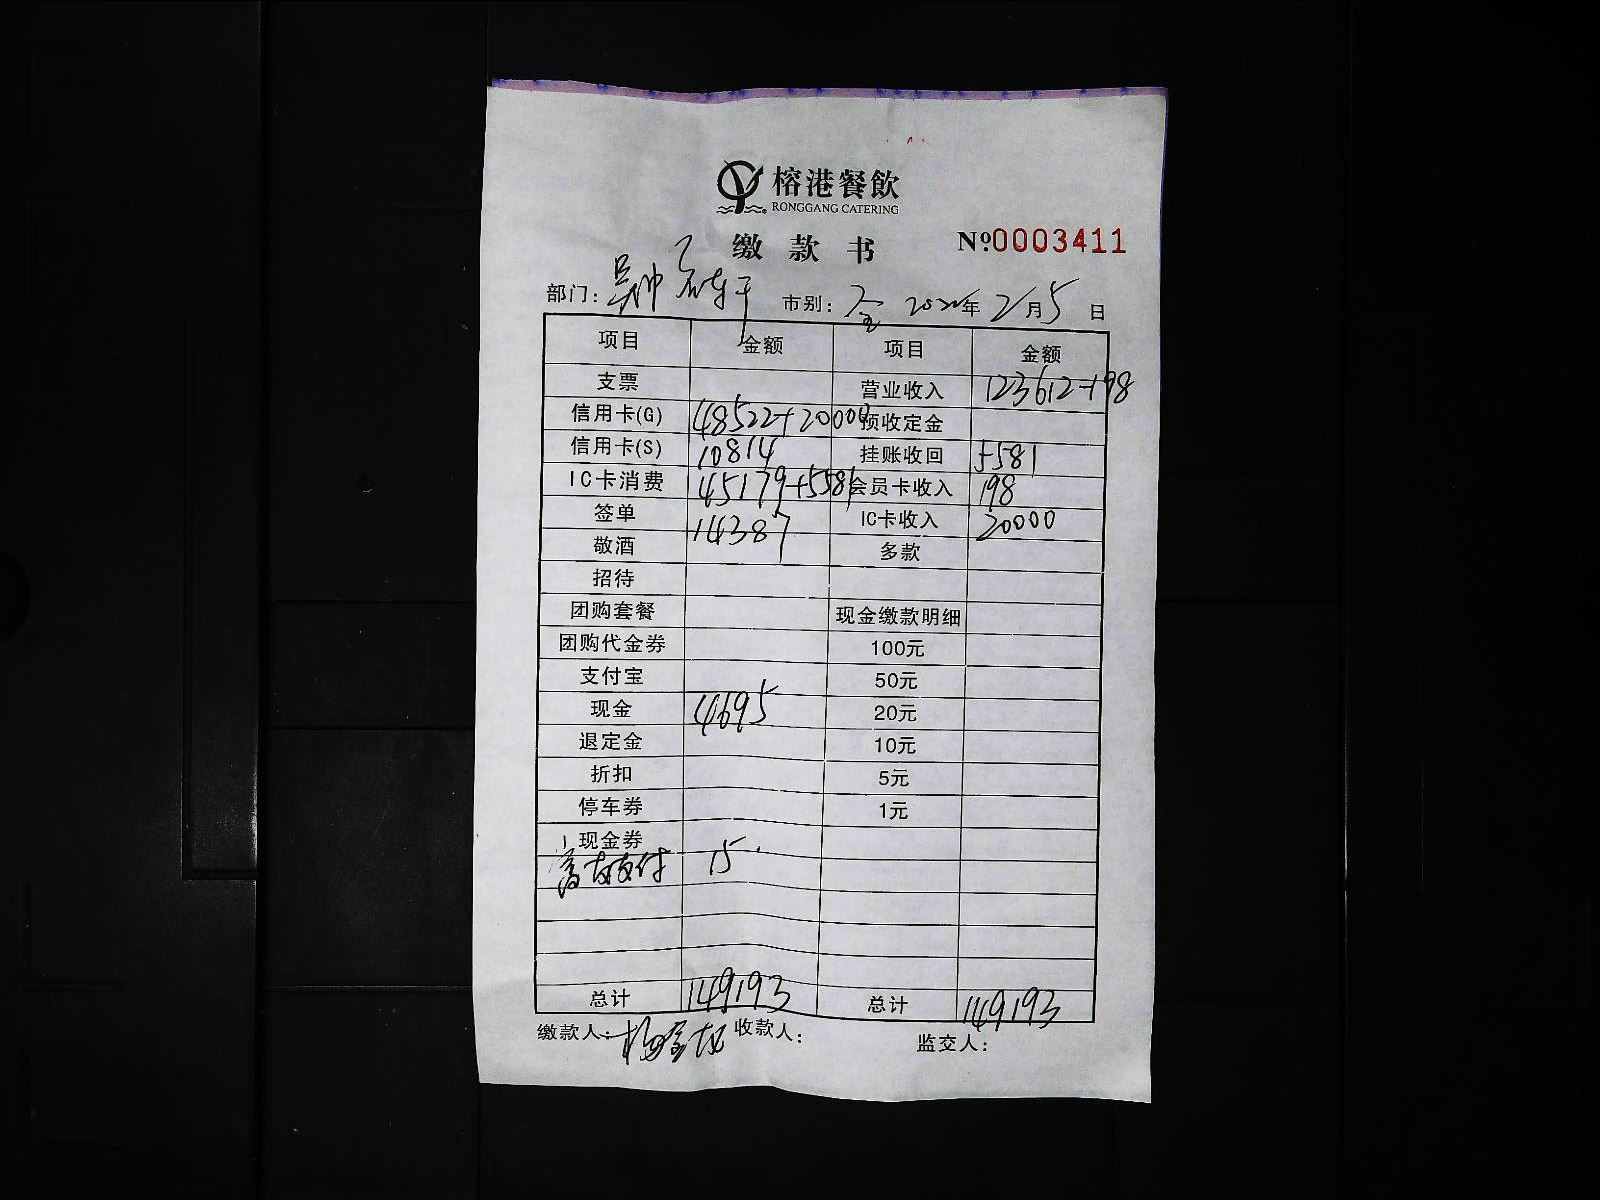 榕港餐飲
RONGGANG CATERING
缴款书 №0003411
部门： 市别：全 年2月5日
项目 金额 项目 金额
支票 营业收入 123612-198
信用卡(G) 48522+20000 预收定金
信用卡(S) 10814 挂账收回 5581
IC卡消费 45179+5581 会员卡收入 198
签单 14387 IC卡收入 20000
敬酒 多款
招待
团购套餐 现金缴款明细
团购代金券 100元
支付宝 50元
现金 4695 20元
退定金 10元
折扣 5元
停车券 1元
现金券
支付 15
总计 149193 总计 149193
缴款人： 收款人： 监交人：